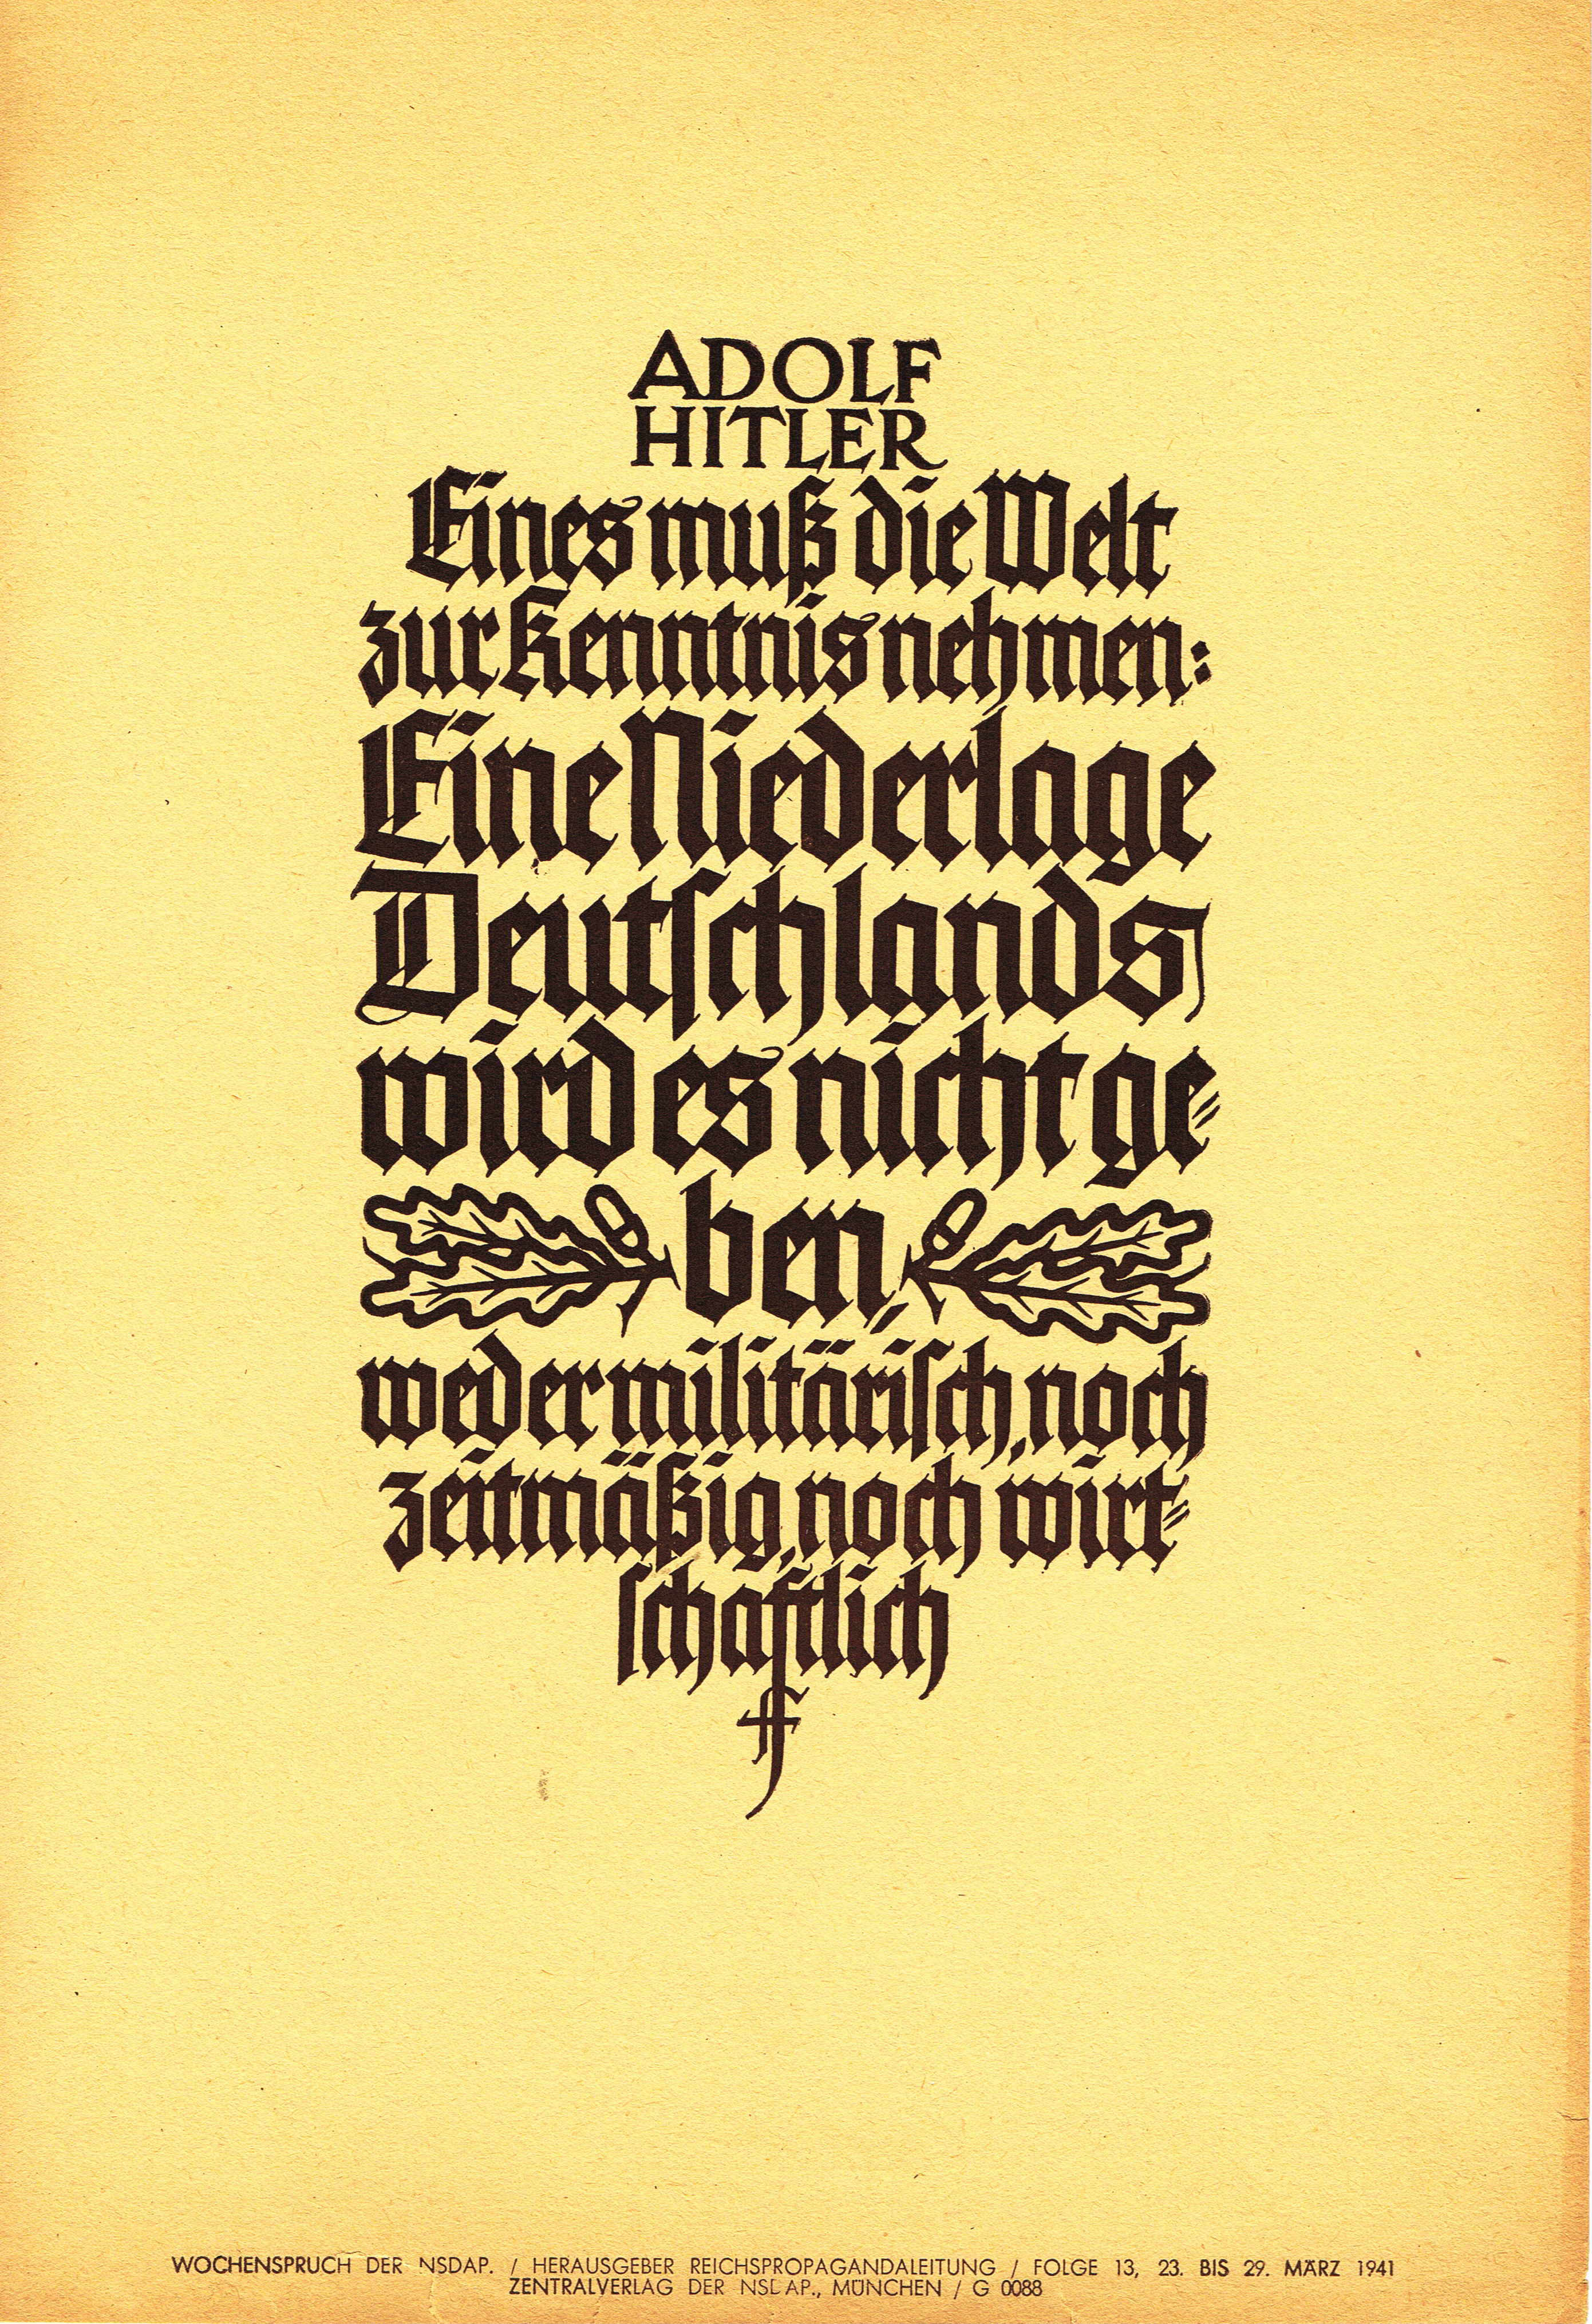 ADOLF
HITLER
Eines muß die Welt
zur Kenntnis nehmen:
Eine Niederlage
Deutschlands
wird es nicht ge-
ben,
weder militärisch, noch
zeitmäßig, noch wirt-
schaftlich
WOCHENSPRUCH DER NSDAP. / HERAUSGEBER REICHSPROPAGANDALEITUNG / FOLGE 13, 23. BIS 29. MÄRZ 1941
ZENTRALVERLAG DER NSDAP., MÜNCHEN / G 0088